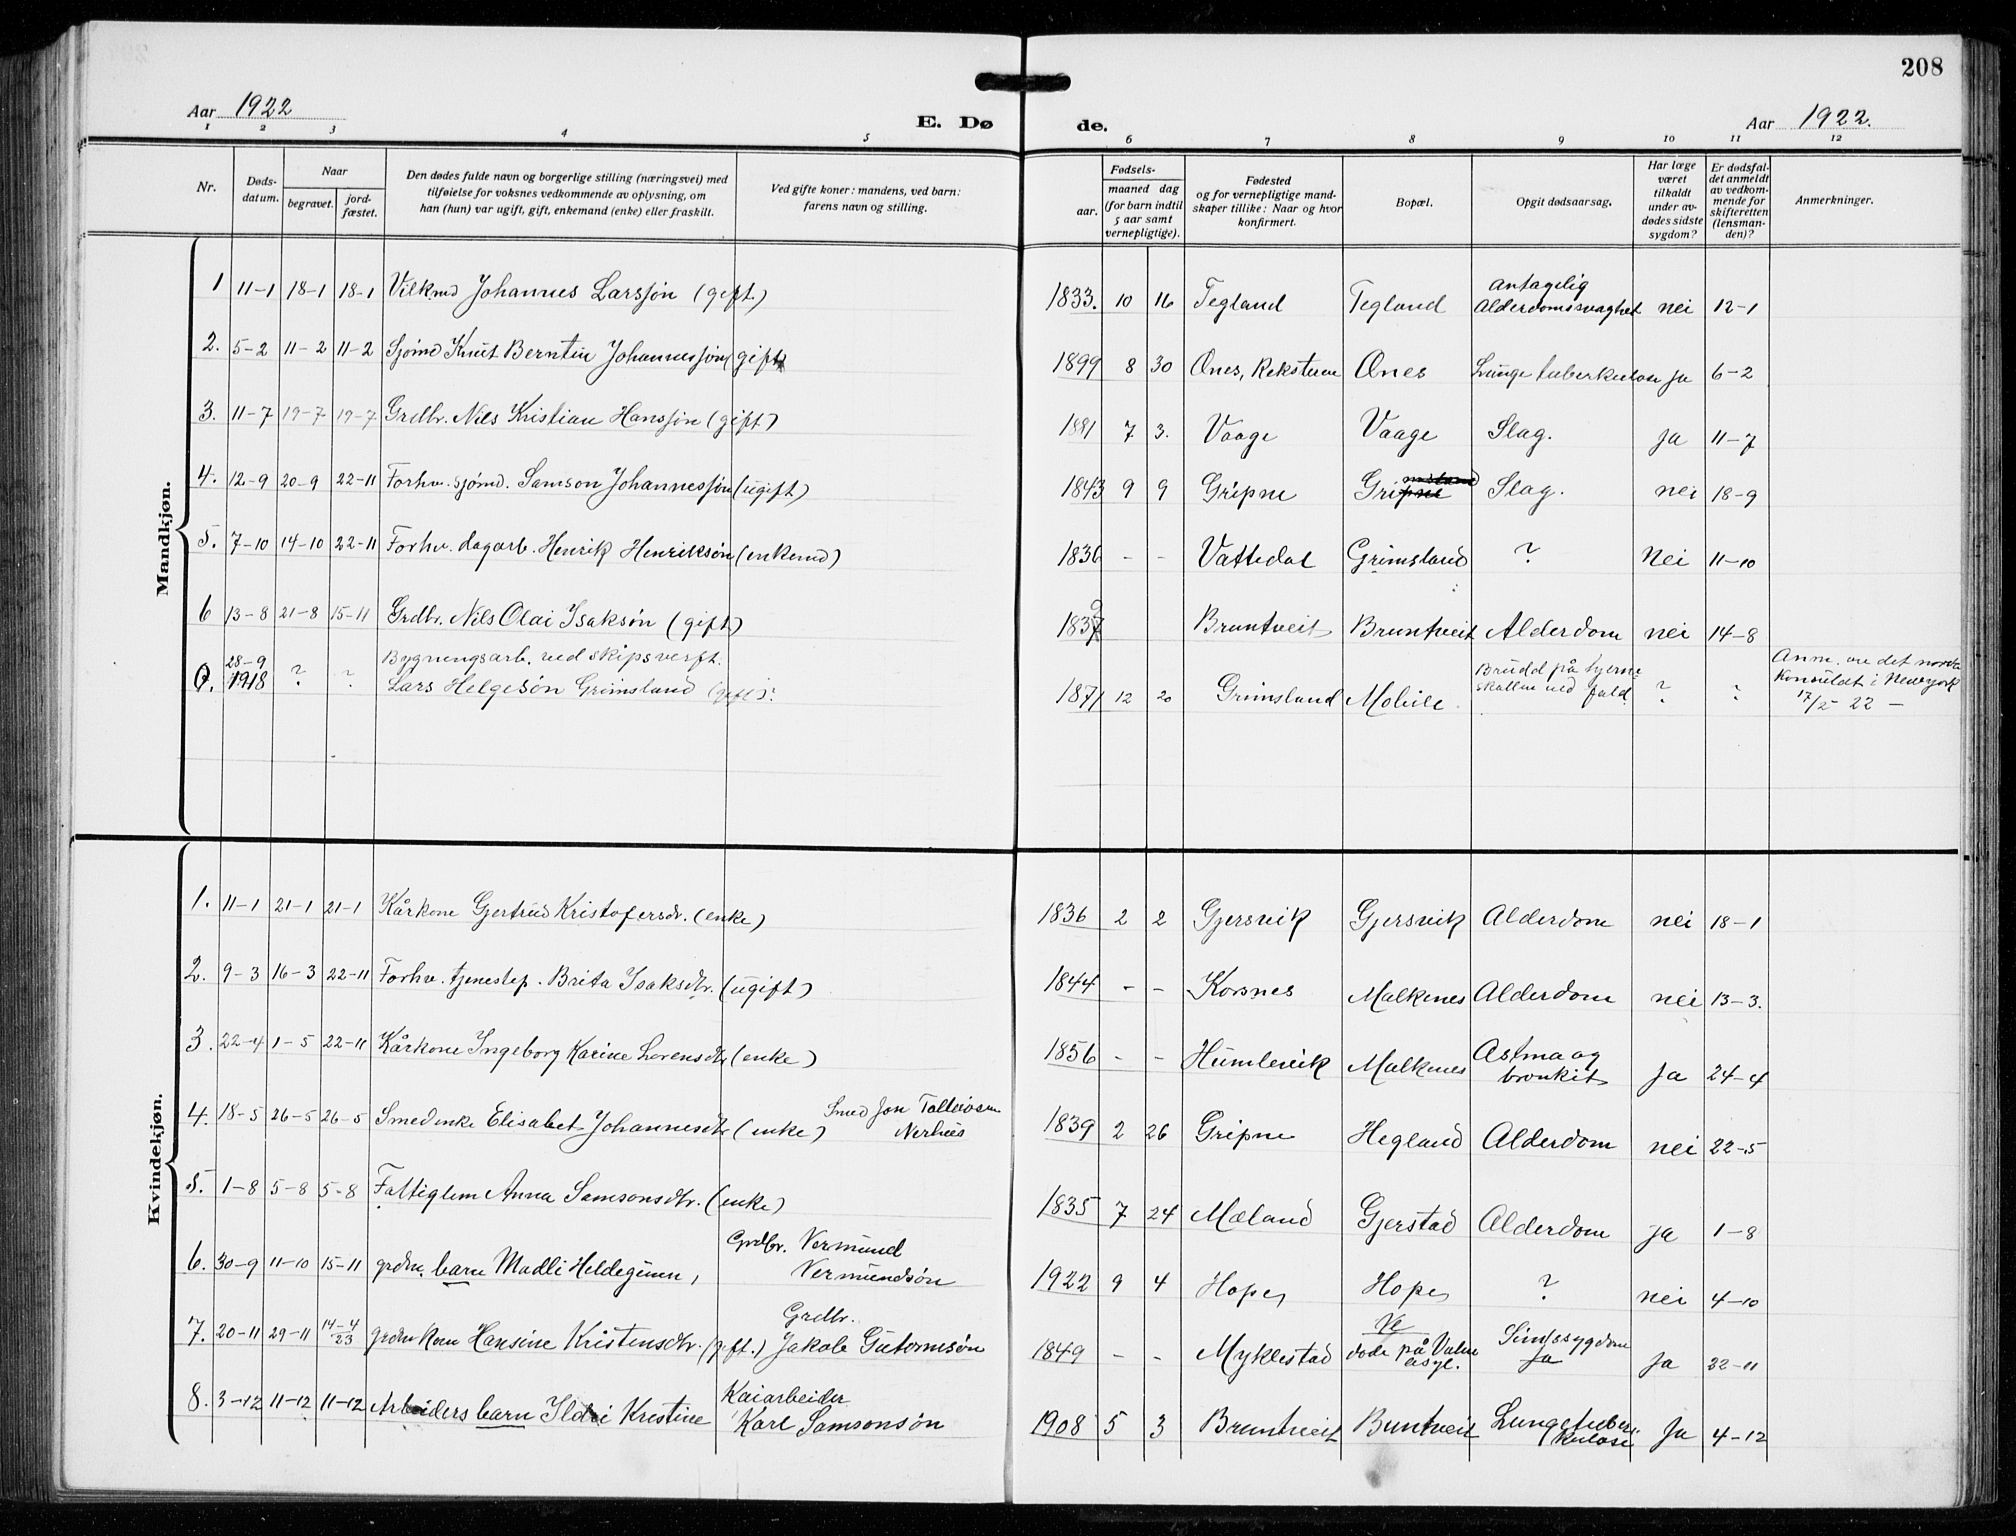 208
Aar 1922
E. Døde.
Aar 1922.
1 2 3 4 5 6 7 8 9 10 11 12
Nr.
Døds-
datum.
Naar
begravet.
jord-
fæstet.
Den dødes fulde navn og borgerlige stilling (næringsvei) med
tilføielse for voksnes vedkommende av oplysning, om
han (hun) var ugift, gift, enkemand (enke) eller fraskilt.
Ved gifte koner: mandens, ved barn:
farens navn og stilling.
Fødsels-
aar.
maaned dag
(for barn indtil
5 aar samt
vernepligtige).
Fødested
og for vernepligtige mand-
skaper tillike: Naar og hvor
konfirmert.
Bopæl.
Opgit dødsaarsag.
Har læge
været
tilkaldt
under av-
dødes sidste
sygdom?
Er dødsfal-
det anmeldt
av vedkom-
mende for
skifteretten
(lensman-
den)?
Anmerkninger.
Mandkjøn.
1 11-1 18-1 18-1 Vilkmd Johannes Larssøn (gift.) 1833. 10 16 Tegland Tegland antagelig
Alderdomssvaghet nei 12-1
2. 5-2 11-2 11-2 Sjømd Knut Berntin Johannessøn (gift) 1899 8 30 Ønes, Reksteren Ønes Lunge tuberkulose ja 6-2
3. 11-7 19-7 19-7 Grdbr. Nils Kristian Hanssøn (gift) 1881 7 3. Vaage Vaage Slag. ja 11-7
4. 12-9 20-9 22-11 Forhv. sjømd. Samson Johannessøn (ugift) 1843 9 9 Gripne Grimsland Slag. nei 18-9
5. 7-10 14-10 22-11 Forhv. dagarb. Henrik Henriksøn (enkemd) 1836 - - Vattedal Grimsland ? Nei 11-10
6 13-8 21-8 15-11 Grdbr. Nils Olai Isaksøn (gift) 1839 Bruntveit Bruntveit Alderdom nei 14-8
0. 28-9
1918 ? ? Bygningsarb. ved skipsverft.
Lars Helgesøn Grimsland (gift)? 1871 12 20 Grimsland Mobile Brudd på hjerne
skallen ved fald. ? ? Anm. av det norske
Konsulat i Newyork
17/5 22 -
Kvindekjøn.
1. 11-1 21-1 21-1 Kårkone Gjertrud Kristofersdr. (enke) 1836 2 2 Gjersvik Gjersvik Alderdom nei 18-1
2. 9-3 16-3 22-11 Forhv. tjenestep. Brita Isaksdtr. (ugift) 1844 - - Korsnes Malkenes Alderdom nei 13-3.
3. 22-4 1-5 22-11 Kårkone Ingeborg Karine Lorensdtr (enke) 1856 - - Humlevik Malkenes Astma og
bronkit ja 24-4
4. 18-5 26-5 26-5 Smedenke Elisabet Johannesdtr (enke) Smed Jon Tolleivsen
Nerhus 1839 2 26 Gripne Hegland Alderdom nei 22-5
5. 1-8 5-8 5-8 Fattiglem Anna Samsonsdtr. (enke) 1835 7 24 Mæland Gjerstad Alderdom ja 1-8
6. 30-9 11-10 15-11 grdm. barn Madli Heldegunn, Grdbr. Vermund
Vermundsøn 1922 9 4 Hope, Hope, ? nei 4-10
7. 20-11 29-11 14-4
23 grdm kone Hansine Kristensdtr. (gift.) Grdbr.
Jakob Gutormsøn 1849 - - Myklestad Ve
døde på Valen
asyl. Sindssygdom
Ja Ja 22-11
8. 3-12 11-12 11-12 Arbeiders barn Ildri Kristine Kaiarbeider
Karl Samsonsøn 1908 5 3 Bruntveit Buntveit Lungetuber-
kulose Ja 4-12